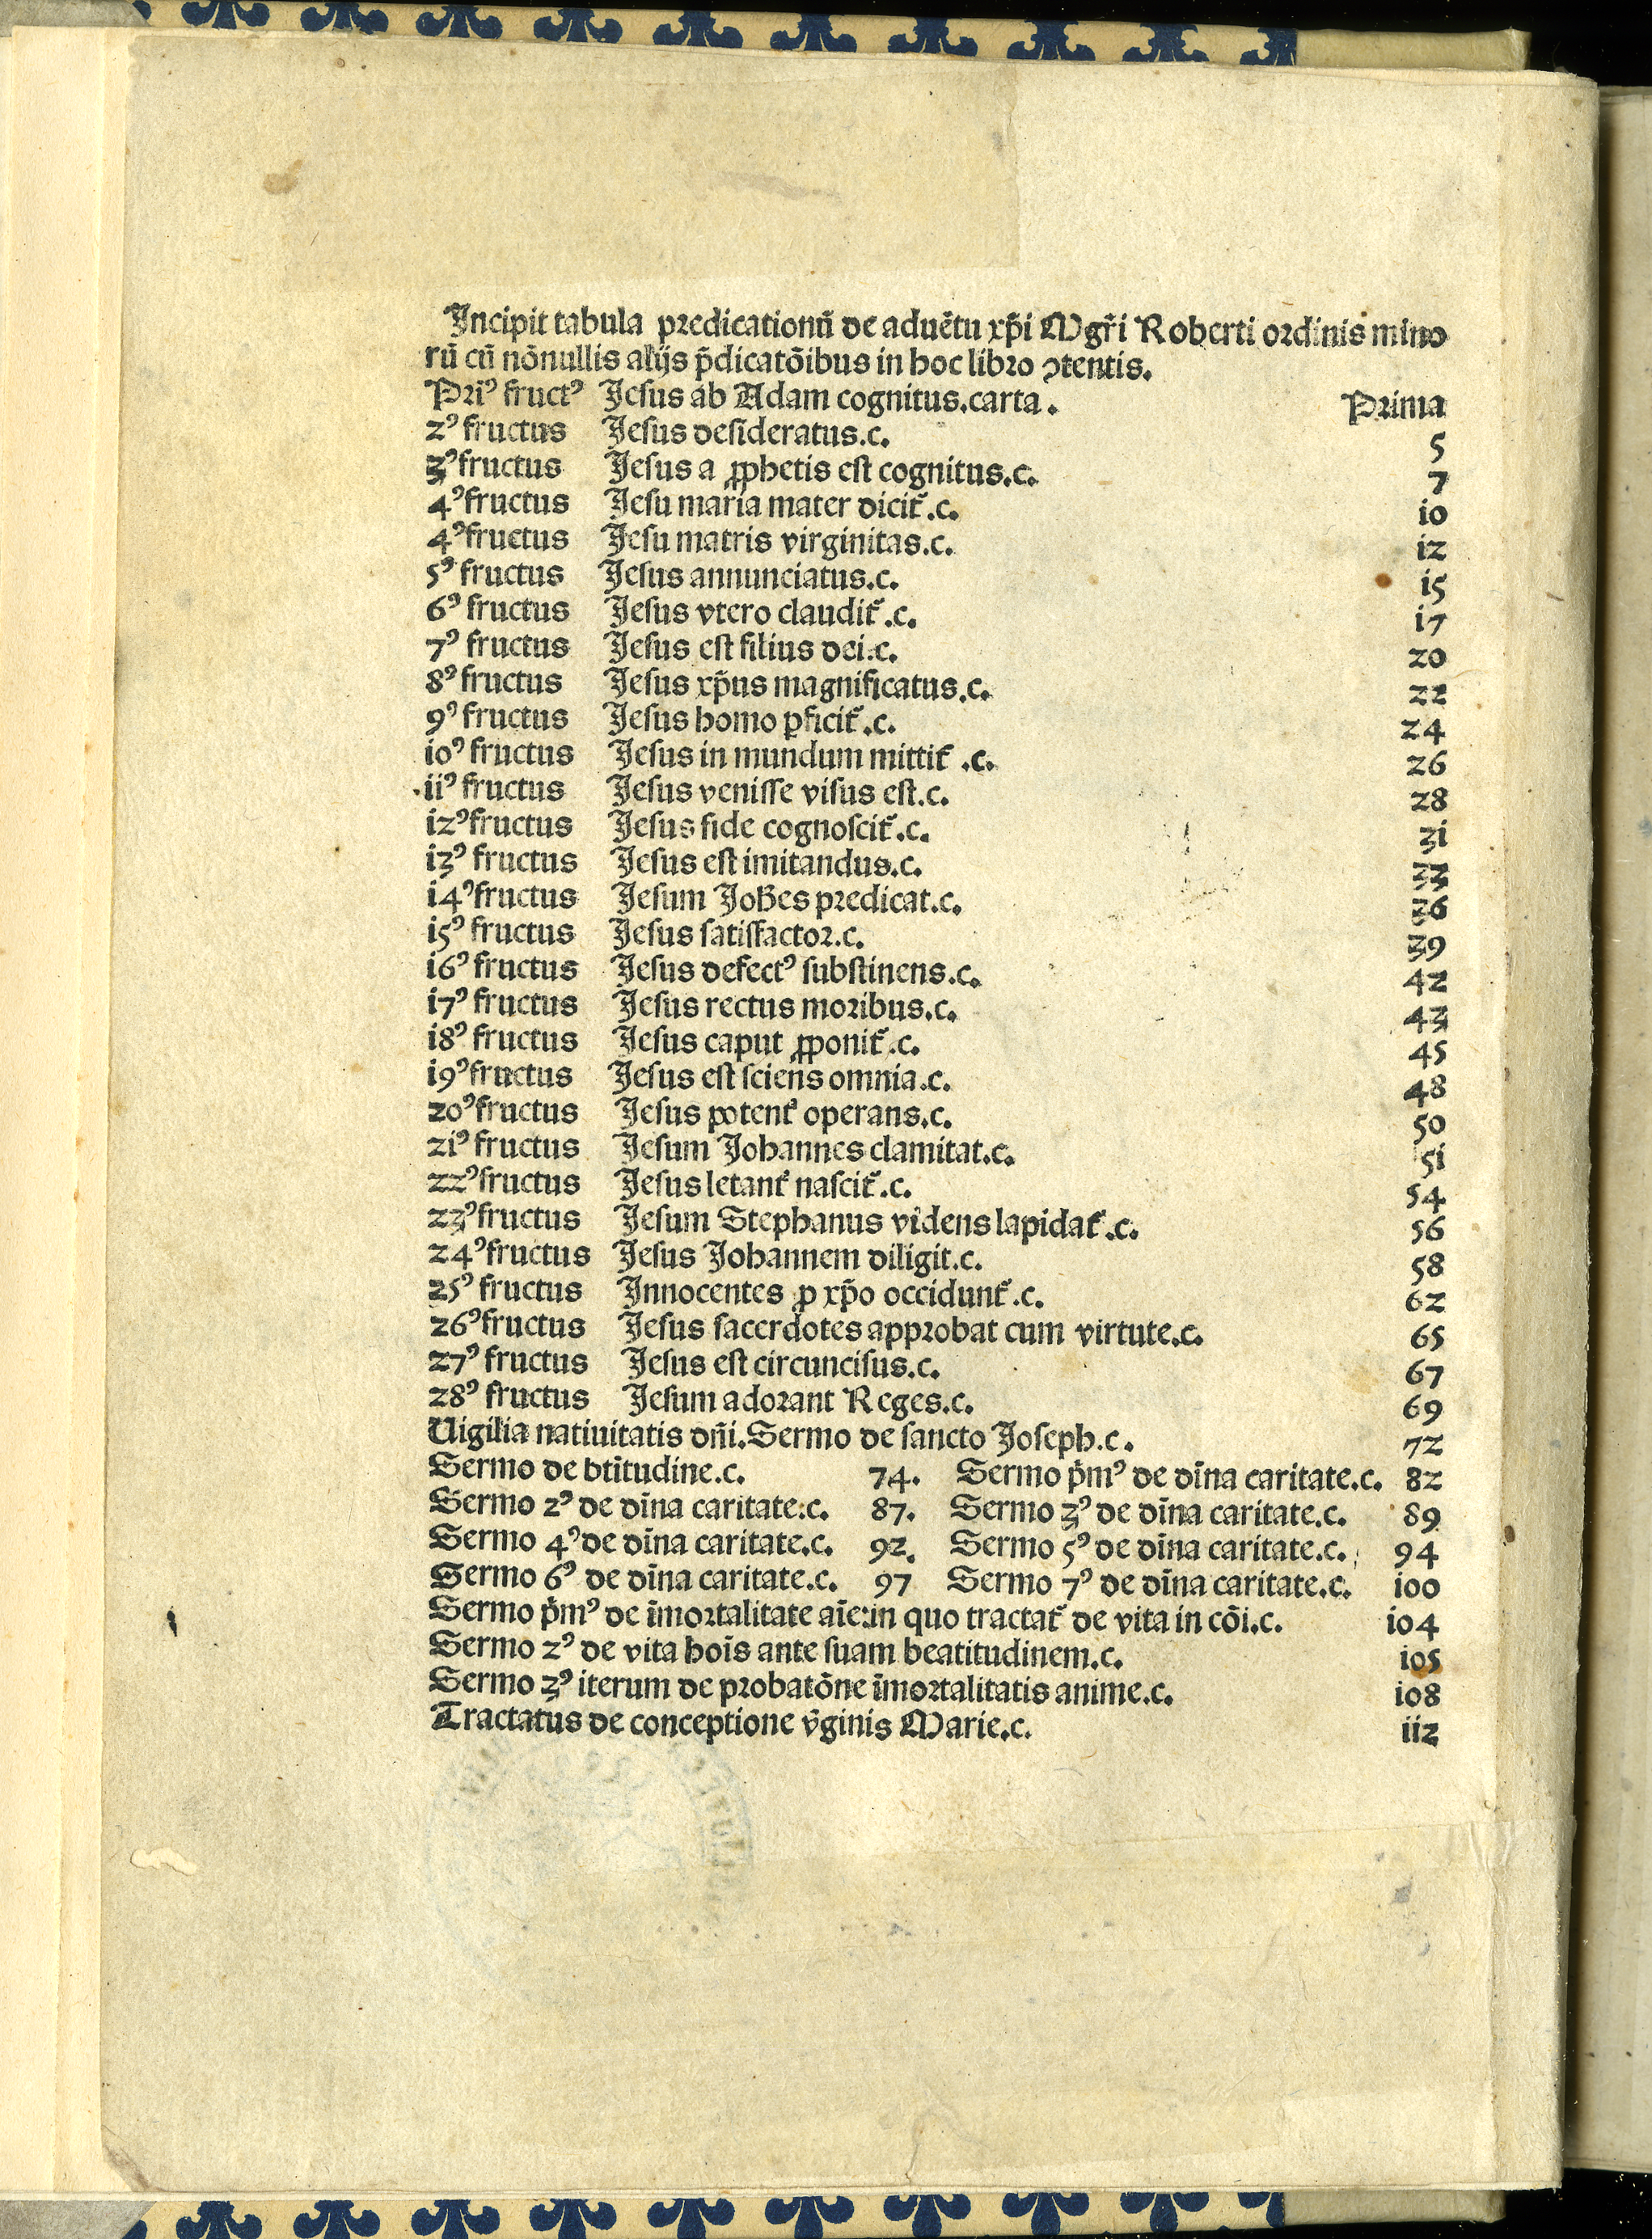 Incipit tabula predicationū de aduētu xp̄i Mgr̄i Roberti ordinis mino
rū cū nōnullis alijs p̄dicatōibus in hoc libro ꝯtentis.
Pri⁹ fruct⁹ Jesus ab Adam cognitus.carta. Prima
2⁹ fructus Jesus desideratus.c. 5
3⁹ fructus Jesus a ꝓphetis est cognitus.c. 7
4⁹ fructus Jesu maria mater dicit᷑.c. i0
4⁹ fructus Jesu matris virginitas.c. i2
5⁹ fructus Jesus annunciatus.c. i5
6⁹ fructus Jesus vtero claudit᷑.c. i7
7⁹ fructus Jesus est filius dei.c. 20
8⁹ fructus Jesus xp̄us magnificatus.c. 22
9⁹ fructus Jesus homo ꝑficit᷑.c. 24
i0⁹ fructus Jesus in mundum mittit᷑ .c. 26
.ii⁹ fructus Jesus venisse visus est.c. 28
i2⁹ fructus Jesus fide cognoscit᷑.c. 3i
i3⁹ fructus Jesus est imitandus.c. 33
i4⁹ fructus Jesum Joh̄es predicat.c. 36
i5⁹ fructus Jesus satisfactor.c. 39
i6⁹ fructus Jesus defect⁹ substinens.c. 42
i7⁹ fructus Jesus rectus moribus.c. 43
i8⁹ fructus Jesus caput ꝓponit᷑.c. 45
i9⁹ fructus Jesus est sciens omnia.c. 48
20⁹ fructus Jesus potent᷑ operans.c. 50
2i⁹ fructus Jesum Johannes clamitat.c. 5i
22⁹ fructus Jesus letant᷑ nascit᷑.c. 54
23⁹ fructus Jesum Stephanus videns lapidat᷑.c. 56
24⁹ fructus Jesus Johannem diligit.c. 58
25⁹ fructus Innocentes ꝓ xp̄o occidunt᷑.c. 62
26⁹ fructus Jesus sacerdotes approbat cum virtute.c. 65
27⁹ fructus Jesus est circuncisus.c. 67
28⁹ fructus Jesum adorant Reges.c. 69
Uigilia natiuitatis dn̄i.Sermo de sancto Joseph.c. 72
Sermo de btītudine.c. 74. Sermo p̄m⁹ de dīna caritate.c. 82
Sermo 2⁹ de dīna caritate.c. 87. Sermo 3⁹ de dīna caritate.c. 89
Sermo 4⁹ de dīna caritate.c. 92. Sermo 5⁹ de dīna caritate.c. 94
Sermo 6⁹ de dīna caritate.c. 97 Sermo 7⁹ de dīna caritate.c. i00
Sermo p̄m⁹ de īmortalitate aīe:in quo tractat᷑ de vita in cōi.c. i04
Sermo 2⁹ de vita hoīs ante suam beatitudinem.c. i05
Sermo 3⁹ iterum de probatōne īmortalitatis anime.c. i08
Tractatus de conceptione v̄ginis Marie.c. ii2